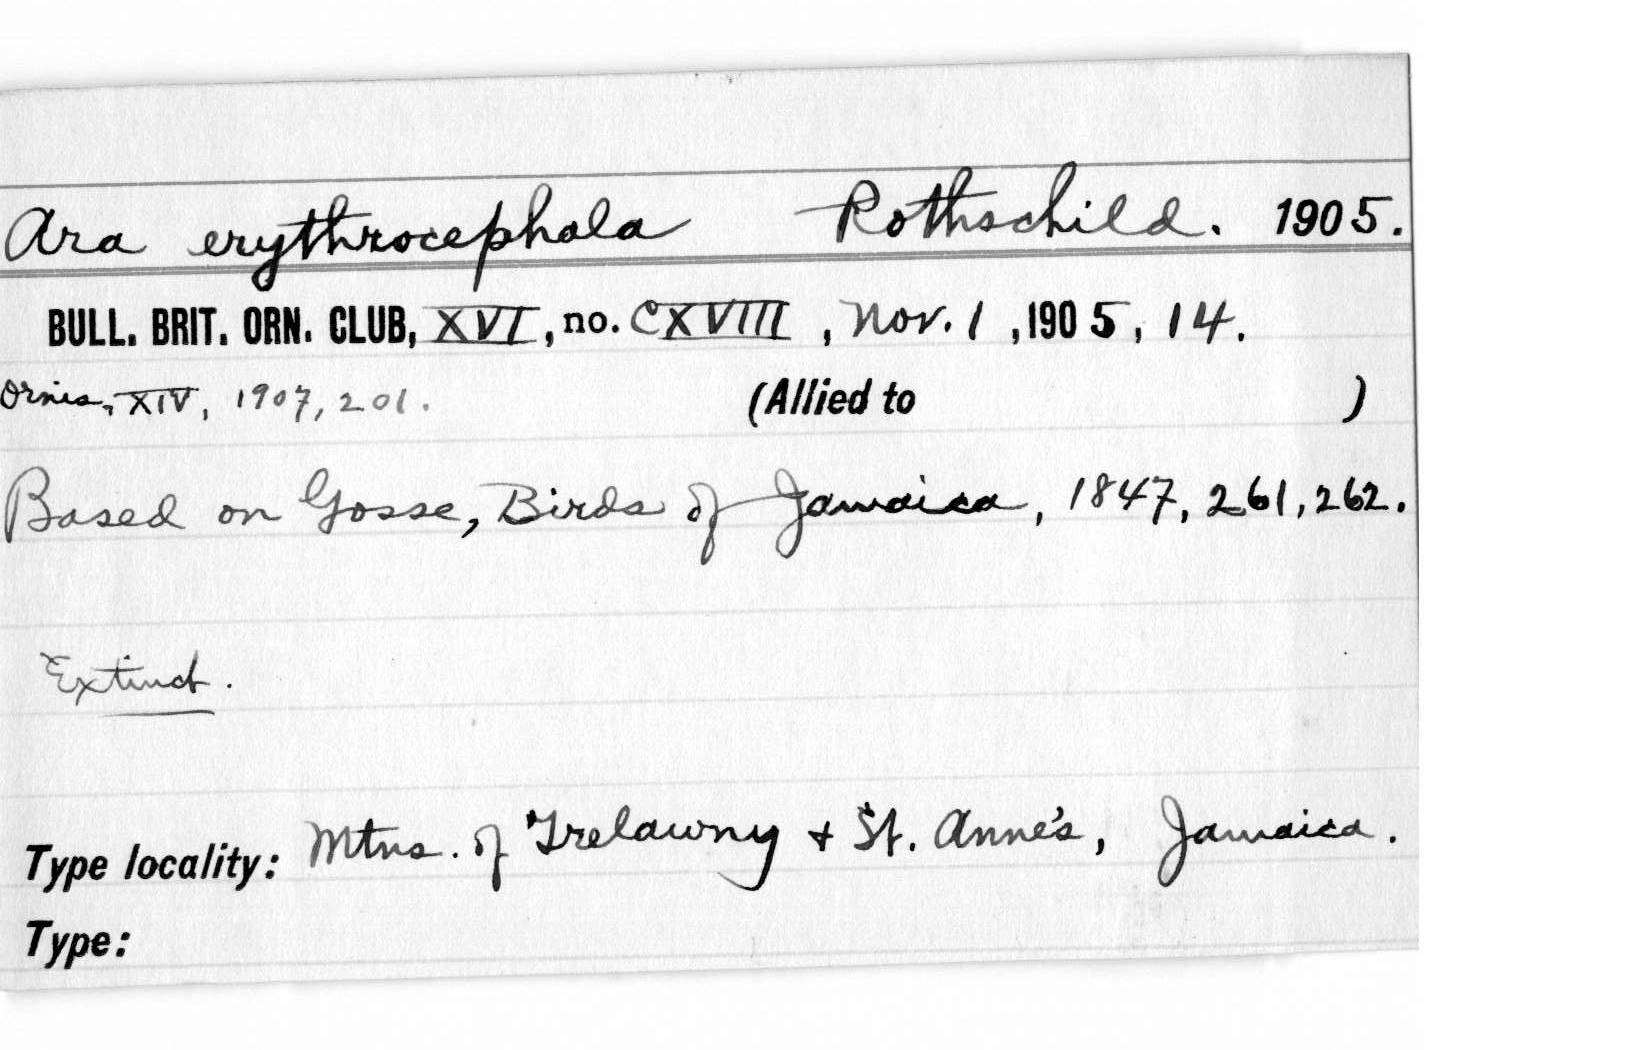 Ara erythrocephala Rothschild. 1905.
BULL. BRIT. ORN. CLUB, XVI, no. CXVIII, Nov. 1, 1905, 14.
Ornis, XIV, 1907, 201. (Allied to )
Based on Gosse, Birds of Jamaica, 1847, 261, 262.
Extinct.
Type locality: Mtns. of Trelawny + St. Anne's, Jamaica.
Type: